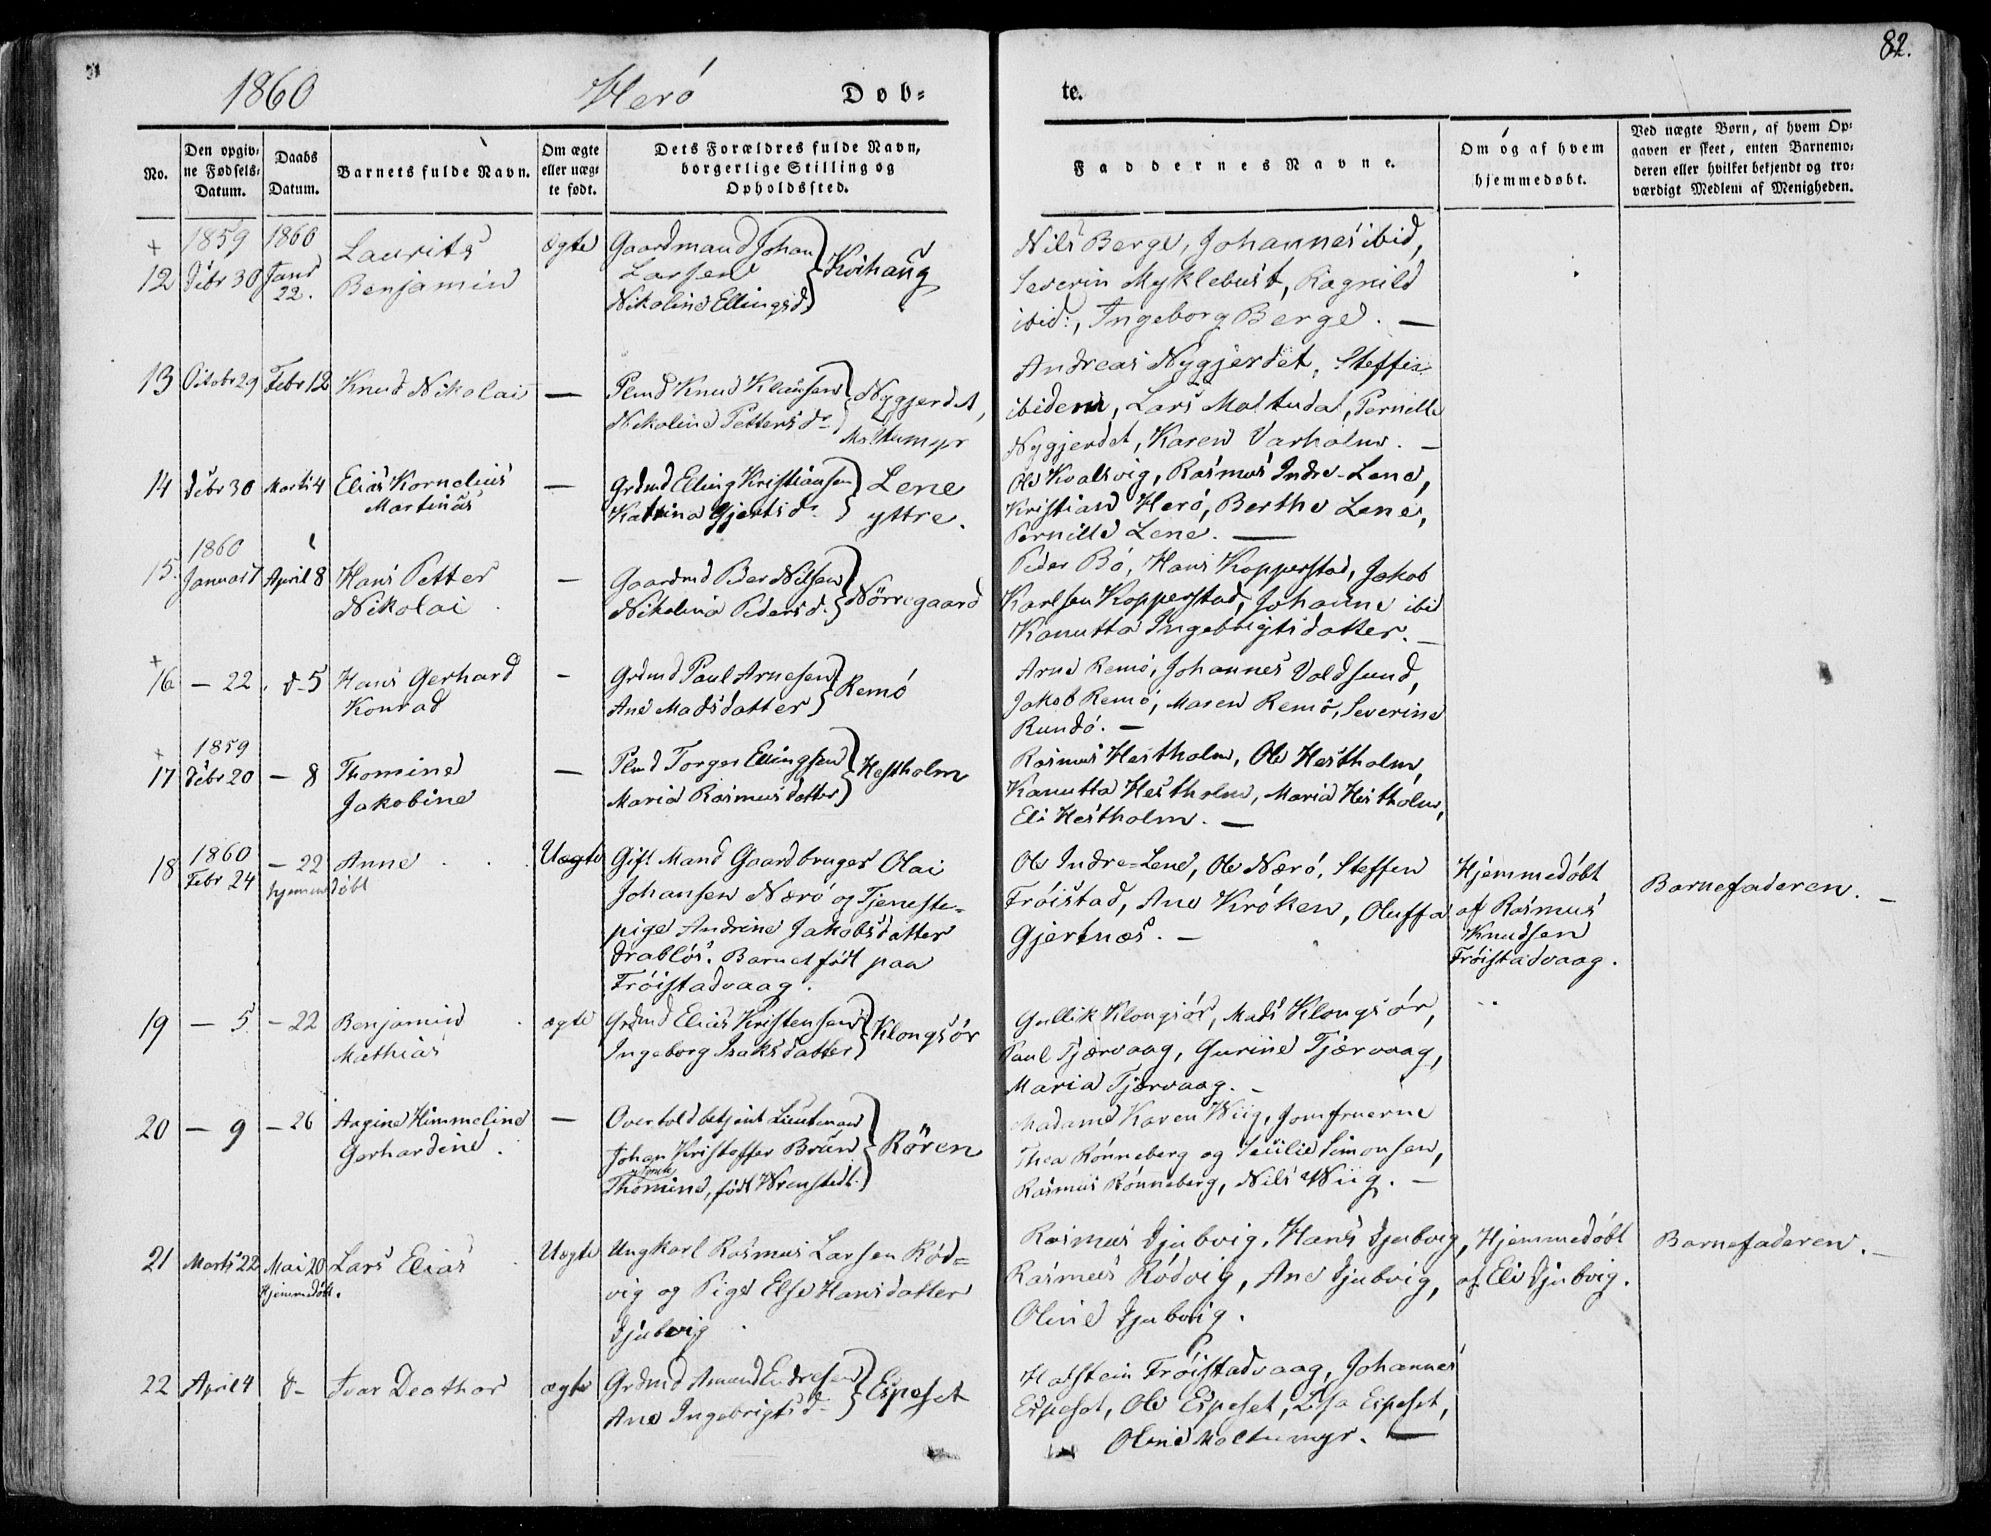 82.
1860 Herö Døb-
te.
No.
Den opgiv-
ne Fødsels-
Datum.
Daabs
Datum.
Barnets fulde Navn.
Om ægte
eller uæg-
te født.
Dets Forældres fulde Navn,
borgerlige Stilling og
Opholdssted.
Faddernes Navne.
Om og af hvem
hjemmedøbt.
Ved uægte Børn, af hvem Op-
gaven er skeet, enten Barnemo-
deren eller hvilket bekjendt og tro-
værdigt Medlem af Menigheden.
+ 1859 1860
12 Dcbr 30 Janr 22. Laurits Benjamin ægte
Gaardmand Johan
Larsen
Nikoline Ellingsd. } Kvihaug
Nils Berge, Johannes ibid,
Severin Myklebust, Ragnild
ibid:, Ingeborg Berge. —
13 Octobr 29 Febr 12 Knud Nikolai —
Plmd Knud Klausen
Nikoline Pettersdr } Nygjerdet,
Moltumyr
Andreas Nygjerdet, Steffen
ibidem, Lars Moltudal, Pernille
Nygjerdet, Karen Varholm. —
14 Dcbr 30 Marts 4 Elias Kornelius
Martinas —
Grdmd Elling Kristiansen
Katrina Gjertsdr } Lene
yttre.
Ole Kvalsvig, Rasmus Indre-Lene,
Kristian Herö, Berthe Lene,
Pernille Lene. —
1860
15. Januar 7 April 8 Hans Petter
Nikolai —
Gaardmd Peder Nilsen
Nikolina Pedersd. } Nörregaard
Peder Bö, Hans Kopperstad, Jakob
Karlsen Kopperstad, Johanne ibid
Kanutta Ingebrigtsdatter. —
+
16 — 22 d. 5 Hans Gerhard
Konrad —
Grdmd Paul Arnesen
Ane Madsdatter } Remö
Arne Remö, Johannes Voldsund,
Jakob Remö, Maren Remö, Severine
Rundö. —
+ 1859
17 Dcbr 20 — 8 Thomine
Jakobine —
Plmd Torger Ellingsen
Maria Rasmusdatter } Hestholm
Rasmus Hestholm, Ole Hestholm,
Kanutta Hestholm, Maria Hestholm,
Eli Hestholm. —
1860
18 Febr 24 — 22 Anne Uægte
hjemmedöbt
Gift Mand Gaardbruger Olai
Johansen Nærö og Tjeneste-
pige Andrine Jakobsdatter
Drablös. Barnet født paa
Fröistadvaag.
Ole Indre-Lene, Ole Nærö, Steffen
Fröistad, Ane Kröken, Oluffa
Gjertnæs. —
Hjemmedöbt
af Rasmus
Knudsen
Fröistadvaag.
Barnefaderen. —
19 — 5 — 22 Benjamin
Mathias ægte
Grdmd Elias Kristensen
Ingeborg Isaksdatter } Klongsör
Gullik Klongsör, Mads Klongsör,
Paul Tjærvaag, Gurine Tjærvaag,
Maria Tjærvaag. —
20 — 9 — 26 Aagine Himmeline
Gerhardine —
Overtoldbetjent Lieutenan
Johan Kristoffer Bruun
Thomine, født Wrenstedt. } Rören
Madame Karen Wiig, Jomfruerne
Thea Rönneberg og Secilie Simonsen,
Rasmus Rönneberg, Nils Wiig. —
21 Marts 22 Mai 20 Lars Elias Uægte
Hjemmedöbt.
Ungkarl Rasmus Larsen Röd-
vig og Pige Else Hansdatter
Djubvig
Rasmus Djubvig, Hans Djubvig,
Rasmus Rödvig, Ane Djubvig,
Oline Djubvig.
Hjemmedöbt
af Eli Djubvig.
Barnefaderen. —
22 April 4 d— Ivar Deathor ægte
Grdmd Amund Endresen
Ane Ingebrigtsd. } Espeset
Halstein Fröistadvaag, Johannes
Espeset, Ole Espeset, Lisa Espeset,
Oline Moltumyr. —